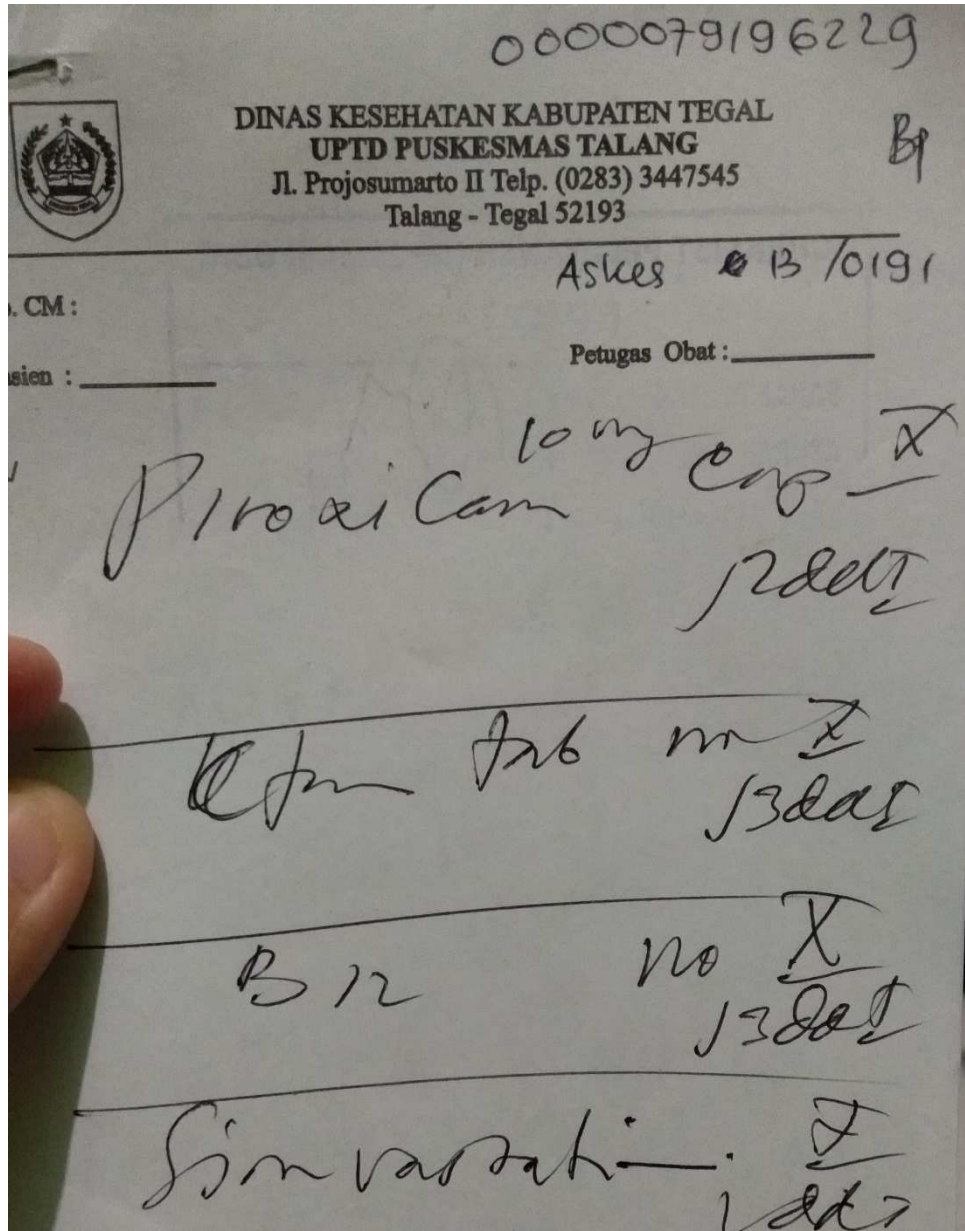 0000079196229
DINAS KESEHATAN KABUPATEN TEGAL
UPTD PUSKESMAS TALANG
Jl. Projosumarto II Telp. (0283) 3447545
Talang - Tegal 52193
Bp
Askes B /0191
. CM :
Petugas Obat :
sien :
Piroxicam 10 mg cap X
S 2 dd I
Ctm tab no X
S 3 dd I
B 12 no X
S 3 dd I
Simvastatin X
1 dd